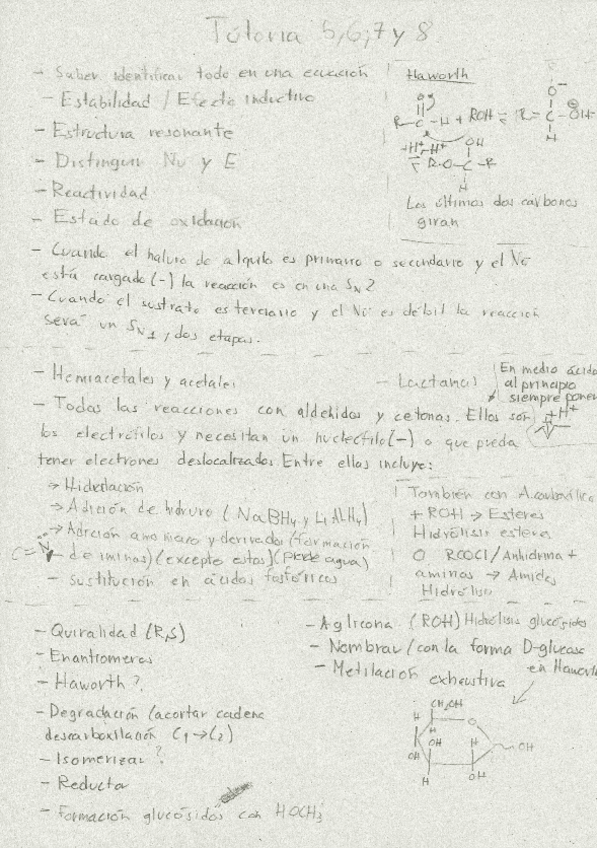 Tutoria 5,6,7 y 8
- Saber identificar todo en una ecuación
- Estabilidad / Efecto inductivo
- Estructura resonante
- Distinguir Nu y E
- Reactividad
- Estado de oxidación
Haworth
R-C-H + ROH ⇌ R-C-OH
-H+, +H+
R-O-C-R
OH
H
Los últimos dos carbonos
giran
- Cuando el haluro de alquilo es primario o secundario y el Nu
está cargado (-) la reacción es en una SN2
- Cuando el sustrato es terciario y el Nu es débil la reacción
será un SN1, dos etapas.
- Hemiacetales y acetales
- Lactancias
En medio ácido
al principio
siempre poner
+H+
- Todas las reacciones con aldehidos y cetonas. Ellos son
los electrófilos y necesitan un nucleófilo (-) o que pueda
tener electrones deslocalizados. Entre ellas incluye:
→ Hidratación
→ Adición de hidruro (NaBH4 y LiAlH4)
→ Adición amoniaco y derivados (formación
de iminas) (excepto estas) (pierde agua)
C=N
- sustitución en ácidos fosfóricos
También con A.carboxílico
+ ROH → Esteres
Hidrólisis esteres
O RCOCl / Anhidrina +
aminas → Amidas
Hidrólisis
- Quiralidad (R,S)
- Enantiomeros
- Haworth?
- Degradación (acortar cadena
descarboxilación C1→C2)
- Isomerizar?
- Reductor
- Formación glucósidos con HOCH3
- Aglicona (ROH) Hidrólisis glucósidos
- Nombrar (con la forma D-glucosa
en Haworth
- Metilación exhaustiva
CH2OH
H
O
H
OH
H
OH
OH
H
OH